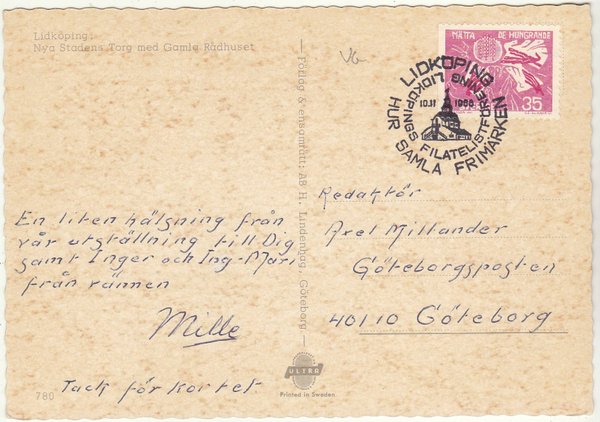 Lidköping:
Nya Stadens Torg med Gamla Rådhuset
En liten hälsning från
vår utställning till Dig
samt Inger och Ing-Mari
från vännen
Mille
Tack för kortet.
780
— Förlag & ensamrätt: AB H. Lindenhag, Göteborg —
ULTRA
Printed in Sweden
MÄTTA DE HUNGRANDE
35
LIDKÖPING
10.11 1966
LIDKÖPINGS FILATELISTFÖRENING
HUR SAMLA FRIMÄRKEN
Redaktör
Axel Millander
Göteborgsposten
40110 Göteborg